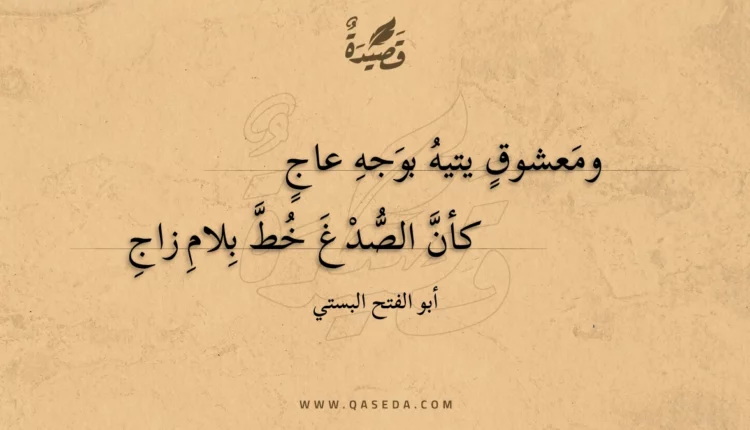 قَصِيْدَةٌ
ومَعشوقٍ يتيهُ بوَجهِ عاجٍ
كأنَّ الصُّدْغَ خُطَّ بِلامِ زاجِ
أبو الفتح البستي
WWW.QASEDA.COM